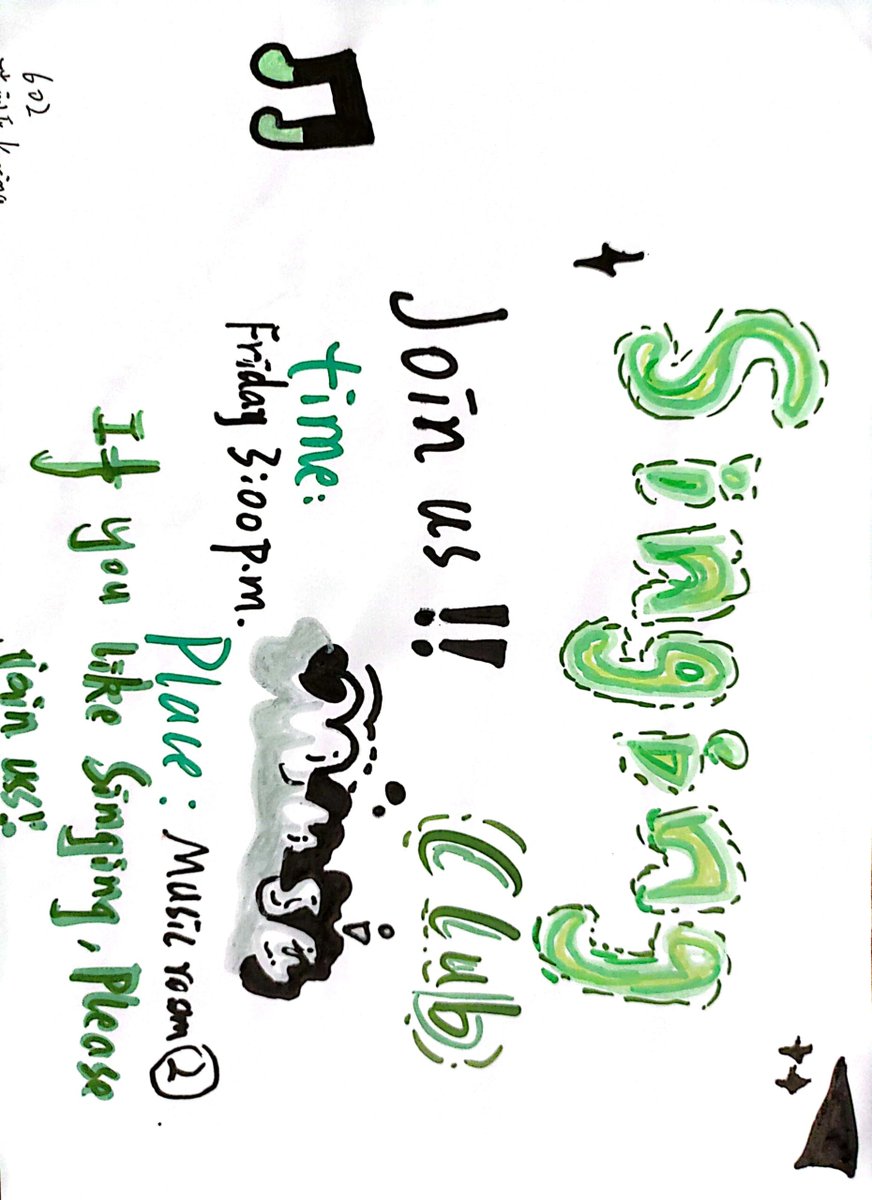 Singing
Club
Join us!!
Music
time:
Friday 3:00p.m.
Place: Music room ②
If you like Singing, Please
Join us!!
602